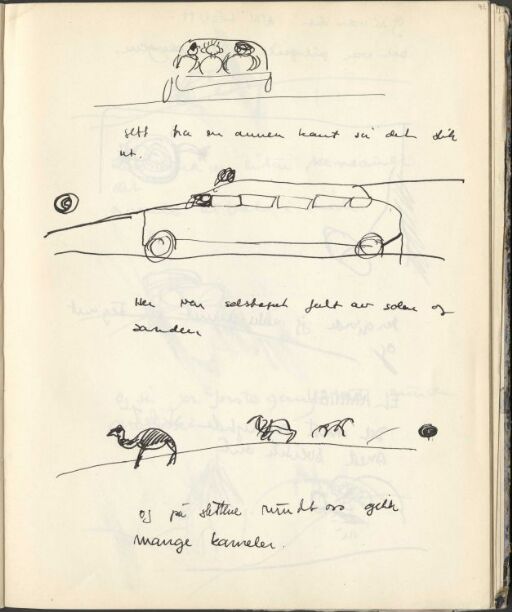 sett fra en annen kant så det slik
ut.
Her var selskapet fullt av solen og
sanden
og på slettene rundt oss gikk
mange kameler.